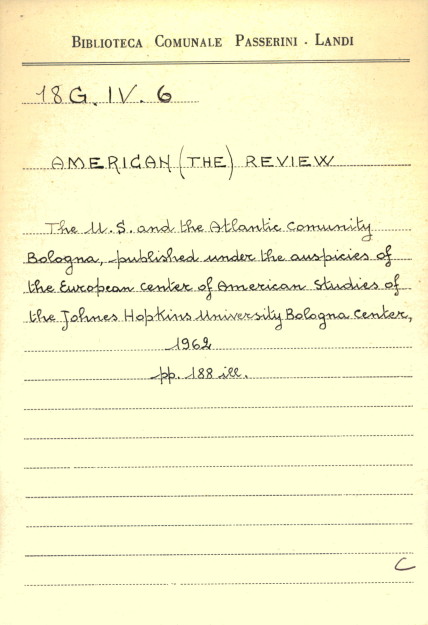 BIBLIOTECA COMUNALE PASSERINI - LANDI
18 G. IV. 6
AMERICAN (THE) REVIEW
The U.S. and the Atlantic Comunity
Bologna, published under the auspicies of
the European Center of American Studies of
the Johnes Hopkins University Bologna Center,
1962
pp. 188 ill.
C